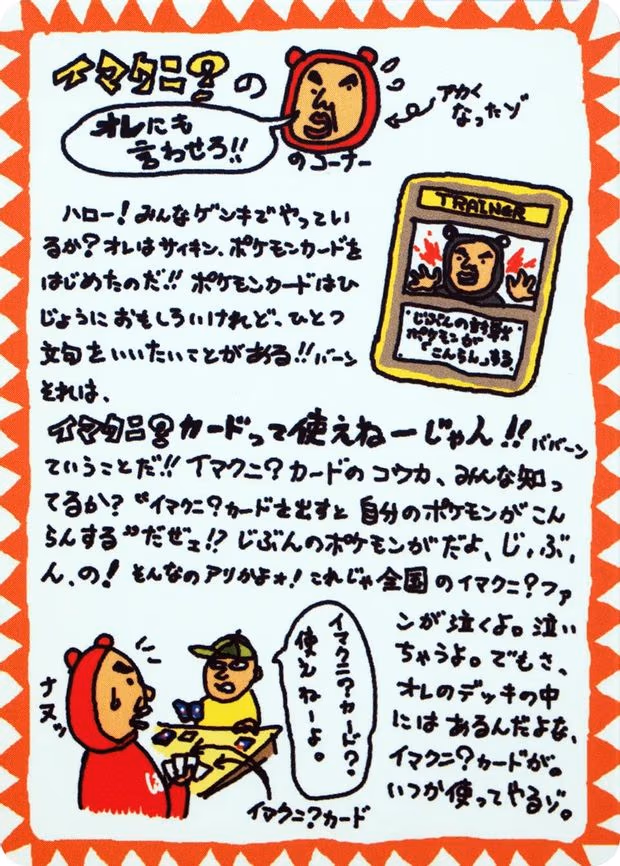 イマクニ?の
オレにも
言わせろ!!
のコーナー
アカく
なったゾ
ハロー!みんなゲンキでやってい
るか?オレはサイキン、ポケモンカードを
はじめたのだ!!ポケモンカードはひ
じょうにおもしろいけれど、ひとつ
文句をいいたいことがある!!バーン
それは、
TRAINER
じぶんの対戦
ポケモンが
「こんらん」する。
イマクニ?カードって使えねーじゃん!!ババーン
ていうことだ!!イマクニ?カードのコウカ、みんな知っ
てるか?“イマクニ?カードを出すと自分のポケモンがこん
らんする”だぜェ!?じぶんのポケモンがだよ、じ,ぶ,
ん、の!そんなのアリかよ★!これじゃ全国のイマクニ?ファ
ンが泣くよ。泣い
ちゃうよ。でもさ、
オレのデッキの中
にはあるんだよな、
イマクニ?カードが。
いつか使ってやるゾ。
ナヌッ
イマクニ?カード?
使えねーよ。
イマクニ?カード